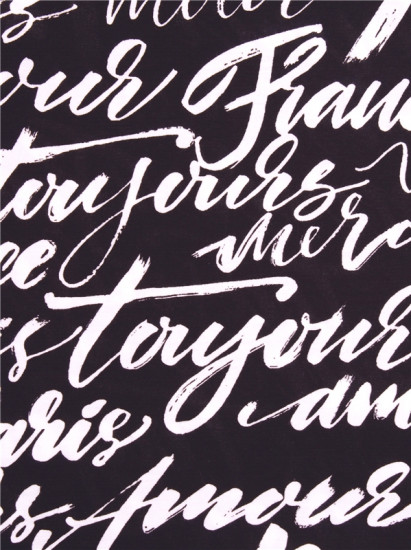 s merci
our Fran
toujours
ce merc
is toujour
aris am
s Amour